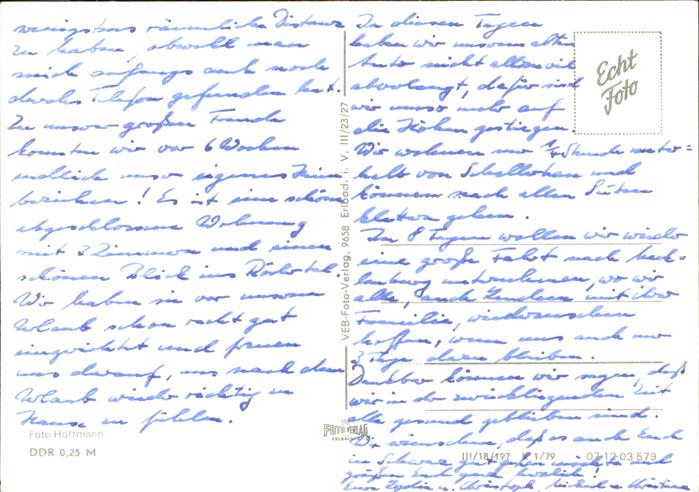 wenigstens räumliche Distanz
zu haben, obwohl man
mich anfangs auch noch
durchs Telefon gefunden hat.
Zu unserer großen Freude
konnten wir vor 6 Wochen
endlich unser eigenes Heim
beziehen! Es ist eine schöne
abgeschlossene Wohnung
mit 3 Zimmern und einem
schönen Blick ins
Wir haben sie vor unserem
Urlaub schon recht gut
eingerichtet und freuen
uns darauf, uns nach dem
Urlaub wieder richtig zu
Hause zu fühlen.
Foto Hoffmann
DDR 0,25 M
VEB-Foto-Verlag, 9658 Erlbach i. V. III/23/27
FOTO VERLAG
ERLBACH
Echt
Foto
In diesen Tagen
haben wir unserem alten
Auto nicht allzu viel
abverlangt, dafür sind
wir umso mehr auf
die Höhen gestiegen.
Wir wohnen nur 1/4 Stunde unter=
halb von und
können nach allen Seiten
klettern gehen.
In 8 Tagen wollen wir wieder
eine große Fahrt nach Meck=
lenburg unternehmen, wo wir
alle, auch mit ihrer
Familie, wiederzusehen
hoffen, wenn uns auch nur
3 Tage dazu bleiben.
Dankbar können wir sagen, daß
wir in der zurückliegenden Zeit
alle gesund geblieben sind.
Wir wünschen, daß es auch Euch
in gut gehen möchte und
grüßen Euch ganz herzlich!
Eure Lydia u. Christoph, u. Christina
III/18/197 K 1/79 07 12 03 579